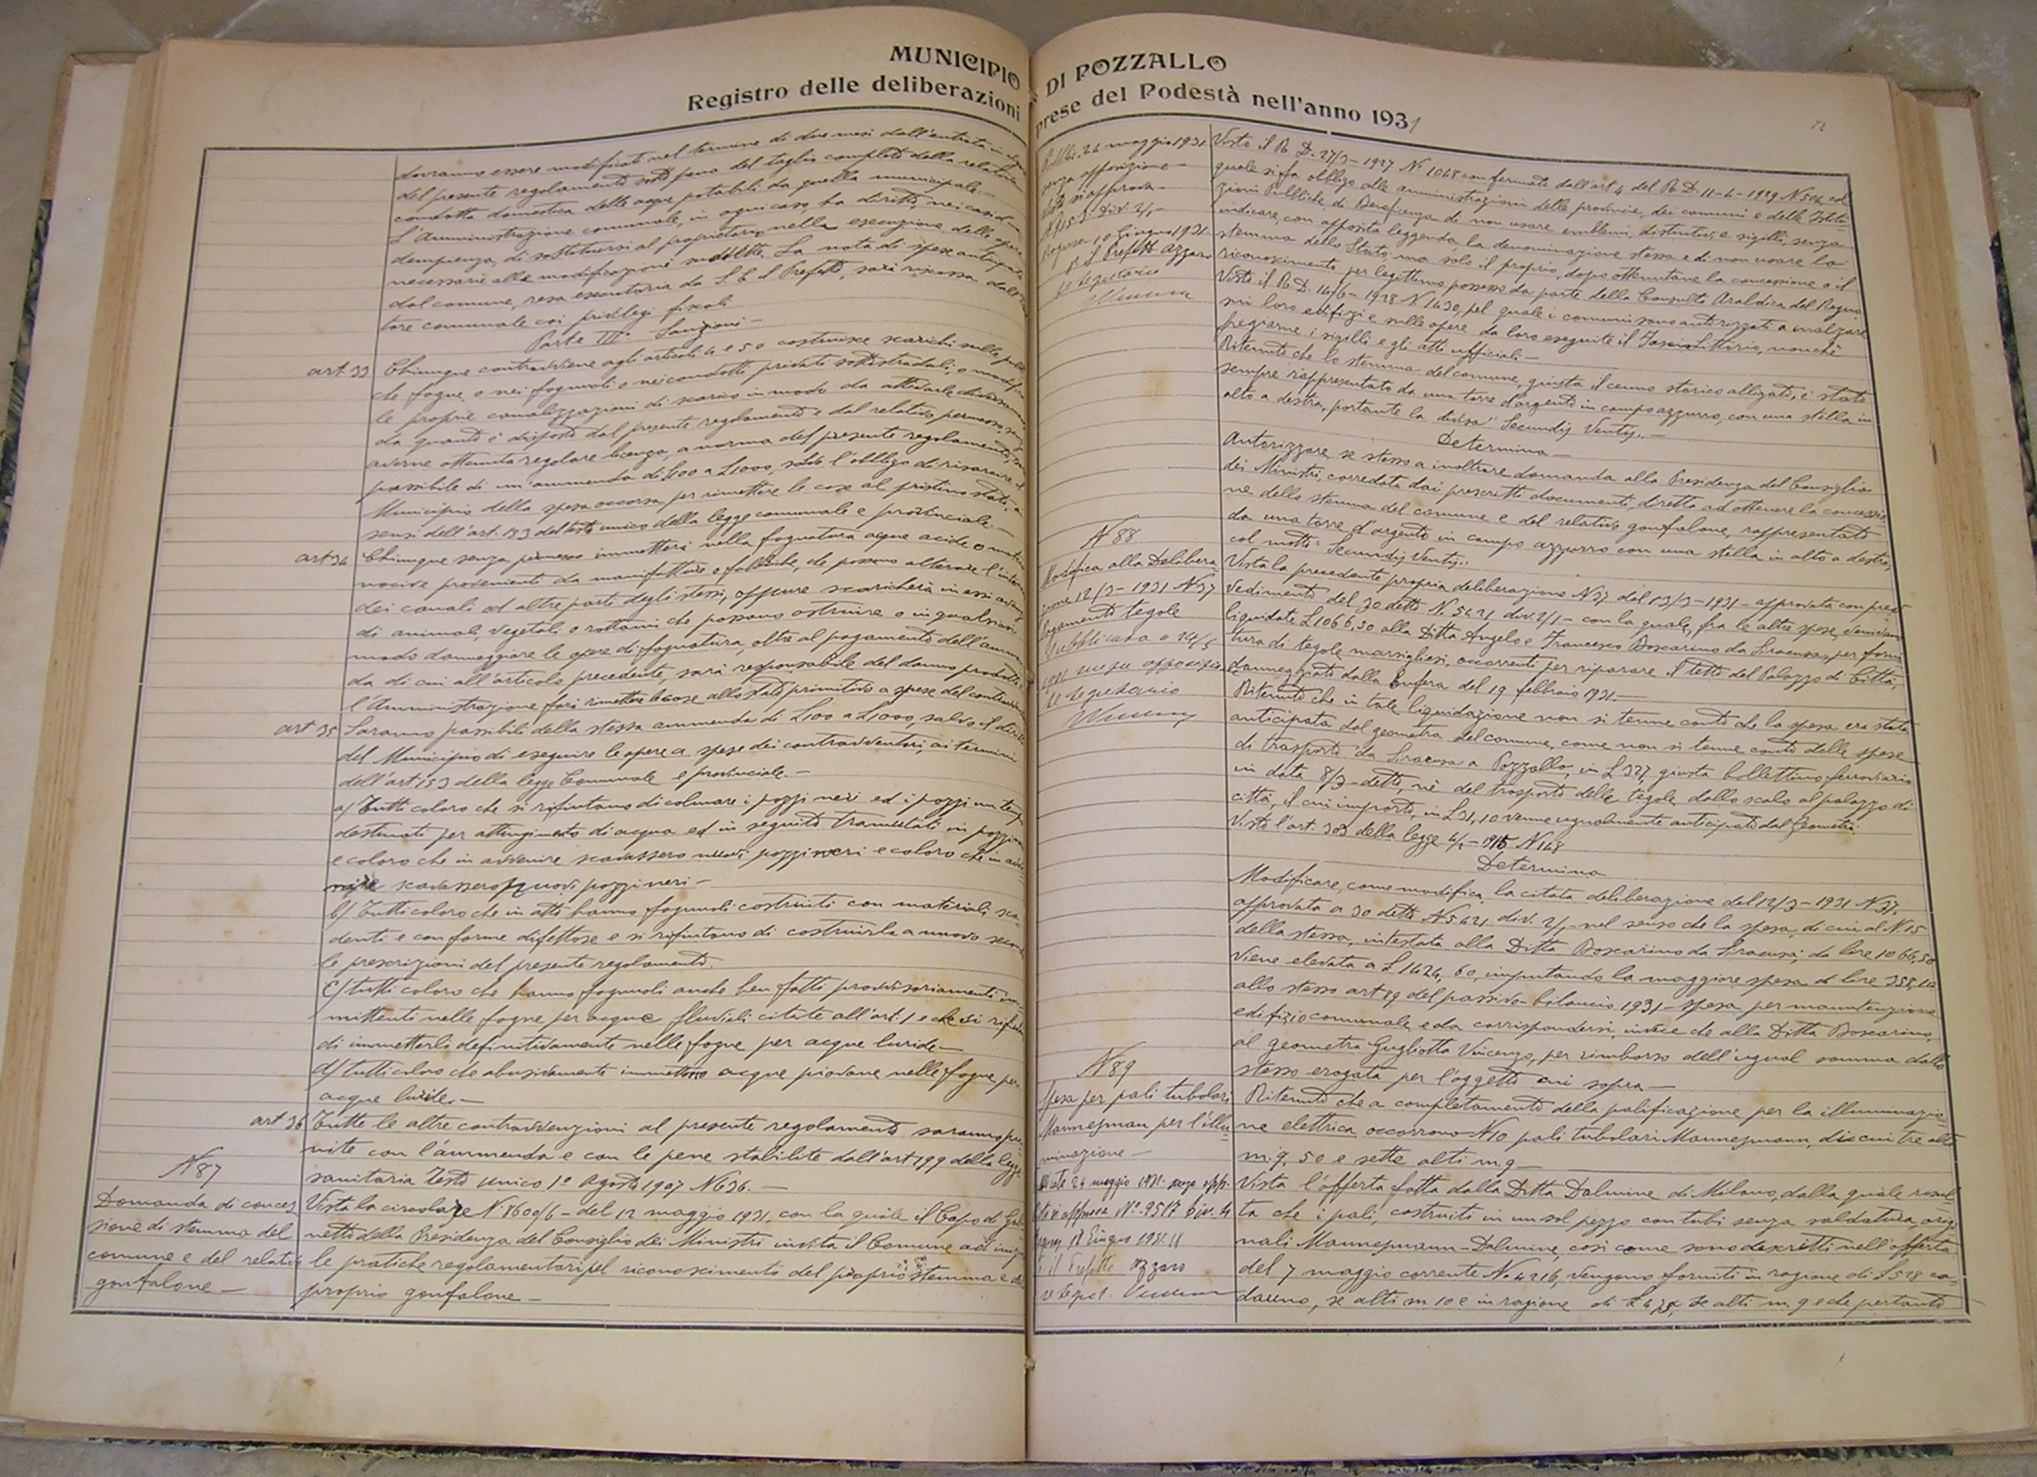 MUNICIPIO DI POZZALLO
Registro delle deliberazioni prese del Podestà nell'anno 1931
dovranno essere modificati nel termine di due mesi dall'entrata in
del presente regolamento sotto pena del taglio completo della relativa
condotta domestica delle acque potabili da quella municipale.
L'Amministrazione comunale, in ogni caso, ha diritto, nei casi d'in
dempienza, di sostituirsi al proprietario nella esecuzione delle opere
necessarie alle modificazioni suddette. La nota di spese anticipata
dal comune, resa esecutoria da S. E. il Prefetto, sarà riscossa dall'
tore comunale coi privilegi fiscali
Parte III. Sanzioni -
art 33 Chiunque contravviene agli articoli 4 e 50 costruisce scarichi nelle pub
che fogne o nei fognuoli o nei condotti privati sottostradali, o modifi
le proprie canalizzazioni di scarico in modo da attivarle diversamen
da quanto è disposto dal presente regolamento e dal relativo permesso, senza
averne ottenuta regolare licenza, a norma del presente regolamento, sarà
passibile di un'ammenda di £100 a £1000, salvo l'obbligo di risarcire il
Municipio della spesa occorsa per rimettere le cose al pristino stato, a
sensi dell'art. 153 del testo unico della legge comunale e provinciale.
art 34 Chiunque senza permesso immetterà nella fognatura acque acide o materie
nocive provenienti da manifatture o fabbriche, che possano alterare l'interno
dei canali od altre parti degli stessi, oppure scaricherà in essi avanzi
di animali, vegetali, o rottami che possano ostruire o in qualsiasi
modo danneggiare le opere di fognatura, oltre al pagamento dell'ammen
da di cui all'articolo precedente, sarà responsabile del danno prodotto.
l'Amministrazione farà rimettere le cose allo stato primitivo a spese del contravven
art 35 Saranno passibili della stessa ammenda di £100 a £1000, salvo il diritto
del Municipio di eseguire le opere a spese dei contravventori, ai termini
dell'art 153 della legge Comunale e provinciale. -
a) Tutti coloro che si rifiutano di colmare i pozzi neri ed i pozzi un tempo
destinati per attingimento di acqua ed in seguito tramutati in pozzi neri
e coloro che in avvenire scavassero nuovi pozzi neri e coloro che in avve
nire scavassero nuovi pozzi neri -
b) Tutti coloro che in atto hanno fognuoli costruiti con materiali sca
denti e con forme difettose e si rifiutano di costruirla a nuovo secondo
le prescrizioni del presente regolamento.
c) tutti coloro che hanno fognuoli anche ben fatti provvisoriamente im
mittenti nelle fogne per acque fluviali citate all'art. 1 e che si rifiutano
di immetterli definitivamente nelle fogne per acque luride -
d) tutti coloro che abusivamente immettono acque piovane nelle fogne per
acque luride. -
art 36 Tutte le altre contravvenzioni al presente regolamento saranno pu
nite con l'ammenda e con le pene stabilite dall'art 199 della legge
sanitaria testo unico 1° agosto 1907 N 636. -
N 87
Domanda di conces
sione di stemma del
comune e del relativo
gonfalone -
Vista la circolare N° 8600/6 - del 12 maggio 1931, con la quale il Capo di Gabi
netto della Presidenza del Consiglio dei Ministri invita il Comune ad iniziare
le pratiche regolamentari pel riconoscimento del proprio stemma e del
proprio gonfalone -
Pubbl. 24 maggio 1931
senza opposizione
si approva -
Div. 2/1 -
Ragusa 10 Giugno 1931
p. il Prefetto Azzaro
Il Segretario
Visto il R. D. 27/3 - 1927 N° 1048 confermato dall'art 4 del R. D. 11-4-1929 N 504 col
quale si fa obbligo alle amministrazioni delle provincie, dei comuni e delle Istitu
zioni Pubbliche di Beneficenza di non usare emblemi, distintivi e sigilli, senza
indicare, con apposita leggenda la denominazione stessa e di non usare lo
stemma dello Stato, ma solo il proprio, dopo ottenutane la concessione o il
riconoscimento per legittimo possesso da parte della Consulta Araldica del Regno
Visto il R. D. 14/6 - 1928 N 1430, pel quale i comuni sono autorizzati a innalzare
sui loro edifizi e sulle opere da loro eseguite il Fascio Littorio, nonchè
fregiarne i sigilli e gli atti ufficiali -
Ritenuto che lo stemma del comune, giusta il cenno storico allegato, è stato
sempre rappresentato da una torre d'argento in campo azzurro, con una stella in
alto a destra, portante la divisa "Secundis Ventis". -
Determina -
Autorizzare se stesso a inoltrare domanda alla Presidenza del Consiglio
dei Ministri, corredata dai prescritti documenti, diretta ad ottenere la concessio
ne dello stemma del comune e del relativo gonfalone, rappresentato
da una torre d'argento in campo azzurro con una stella in alto a destra,
col motto "Secundis Ventis".
N 88
Modifica alla Delibera
zione 12/3 - 1931 N 37
Pagamento tegole
Pubblicata a 24/5
1931 senza opposizione
Il Segretario
Vista la precedente propria deliberazione N 37 del 12/3 - 1931 - approvata con prov
vedimento del 30 detto N. 5421 div. 2/1 - con la quale, fra le altre spese, venivano
liquidate £ 1066,50 alla Ditta Angelo e Francesco Boscarino da Siracusa, per forni
tura di tegole marsigliesi, occorrenti per riparare il tetto del Palazzo di Città,
danneggiato dalla bufera del 19 febbraio 1931. -
Ritenuto che in tale liquidazione non si tenne conto che la spesa era stata
anticipata dal geometra del comune, come non si tenne conto delle spese
di trasporto da Siracusa a Pozzallo, in £ 327, giusta bollettino ferroviario
in data 8/3 - detto, nè del trasporto delle tegole dallo scalo al palazzo di
città, il cui importo, in £ 31,10 venne ugualmente anticipato dal geometra.
Visto l'art. 303 della legge 4/2 - 1915 N 148
Determina
Modificare, come modifica, la citata deliberazione del 12/3 - 1931 N 37.
approvata a 30 detto N 5421 div. 2/1 - nel senso che la spesa, di cui al N 15
della stessa, intestata alla Ditta Boscarino da Siracusa, da lire 1066,50
viene elevata a £ 1424,60, imputando la maggiore spesa di lire 358,10
allo stesso art 29 del passivo - bilancio 1931 - spesa per manutenzione
edifizio comunale, e da corrispondersi, invece che alla Ditta Boscarino,
al geometra Gugliotta Vincenzo, per rimborso dell'ugual somma dallo
stesso erogata per l'oggetto cui sopra -
N 89
Spesa per pali tubolari
Mannesman per l'illu
minazione -
24 maggio 1931 - senza opp.
si approva N° 9517 Div. 2/1
Ragusa 18 Giugno 1931 - IX
p. il Prefetto Azzaro
Il Segret.
Ritenuto che a completamento della palificazione per la illuminazio
ne elettrica occorrono N 10 pali tubolari Mannesmann, di cui tre alti
m. 9,50 e sette alti m. 9 -
Vista l'offerta fatta dalla Ditta Dalmine di Milano, dalla quale risul
ta che i pali, costruiti in un sol pezzo con tubi senza saldatura, origi
nali Mannesmann - Dalmine, così come sono descritti nell'offerta
del 7 maggio corrente N. 4216, vengono forniti in ragione di £ 528 ca
dauno, se alti m 10 e in ragione di £ se alti m. 9 e che pertanto